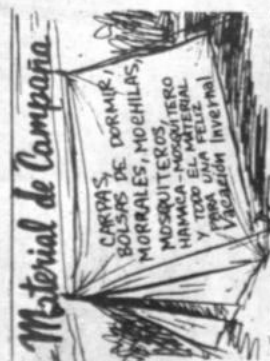 Material de Campaña
CARPAS,
BOLSAS DE DORMIR,
MORRALES, MOCHILAS,
MOSQUITEROS,
HAMACA-MOSQUITERO
Y TODO EL MATERIAL
PARA UNA FELIZ
Vacación Invernal